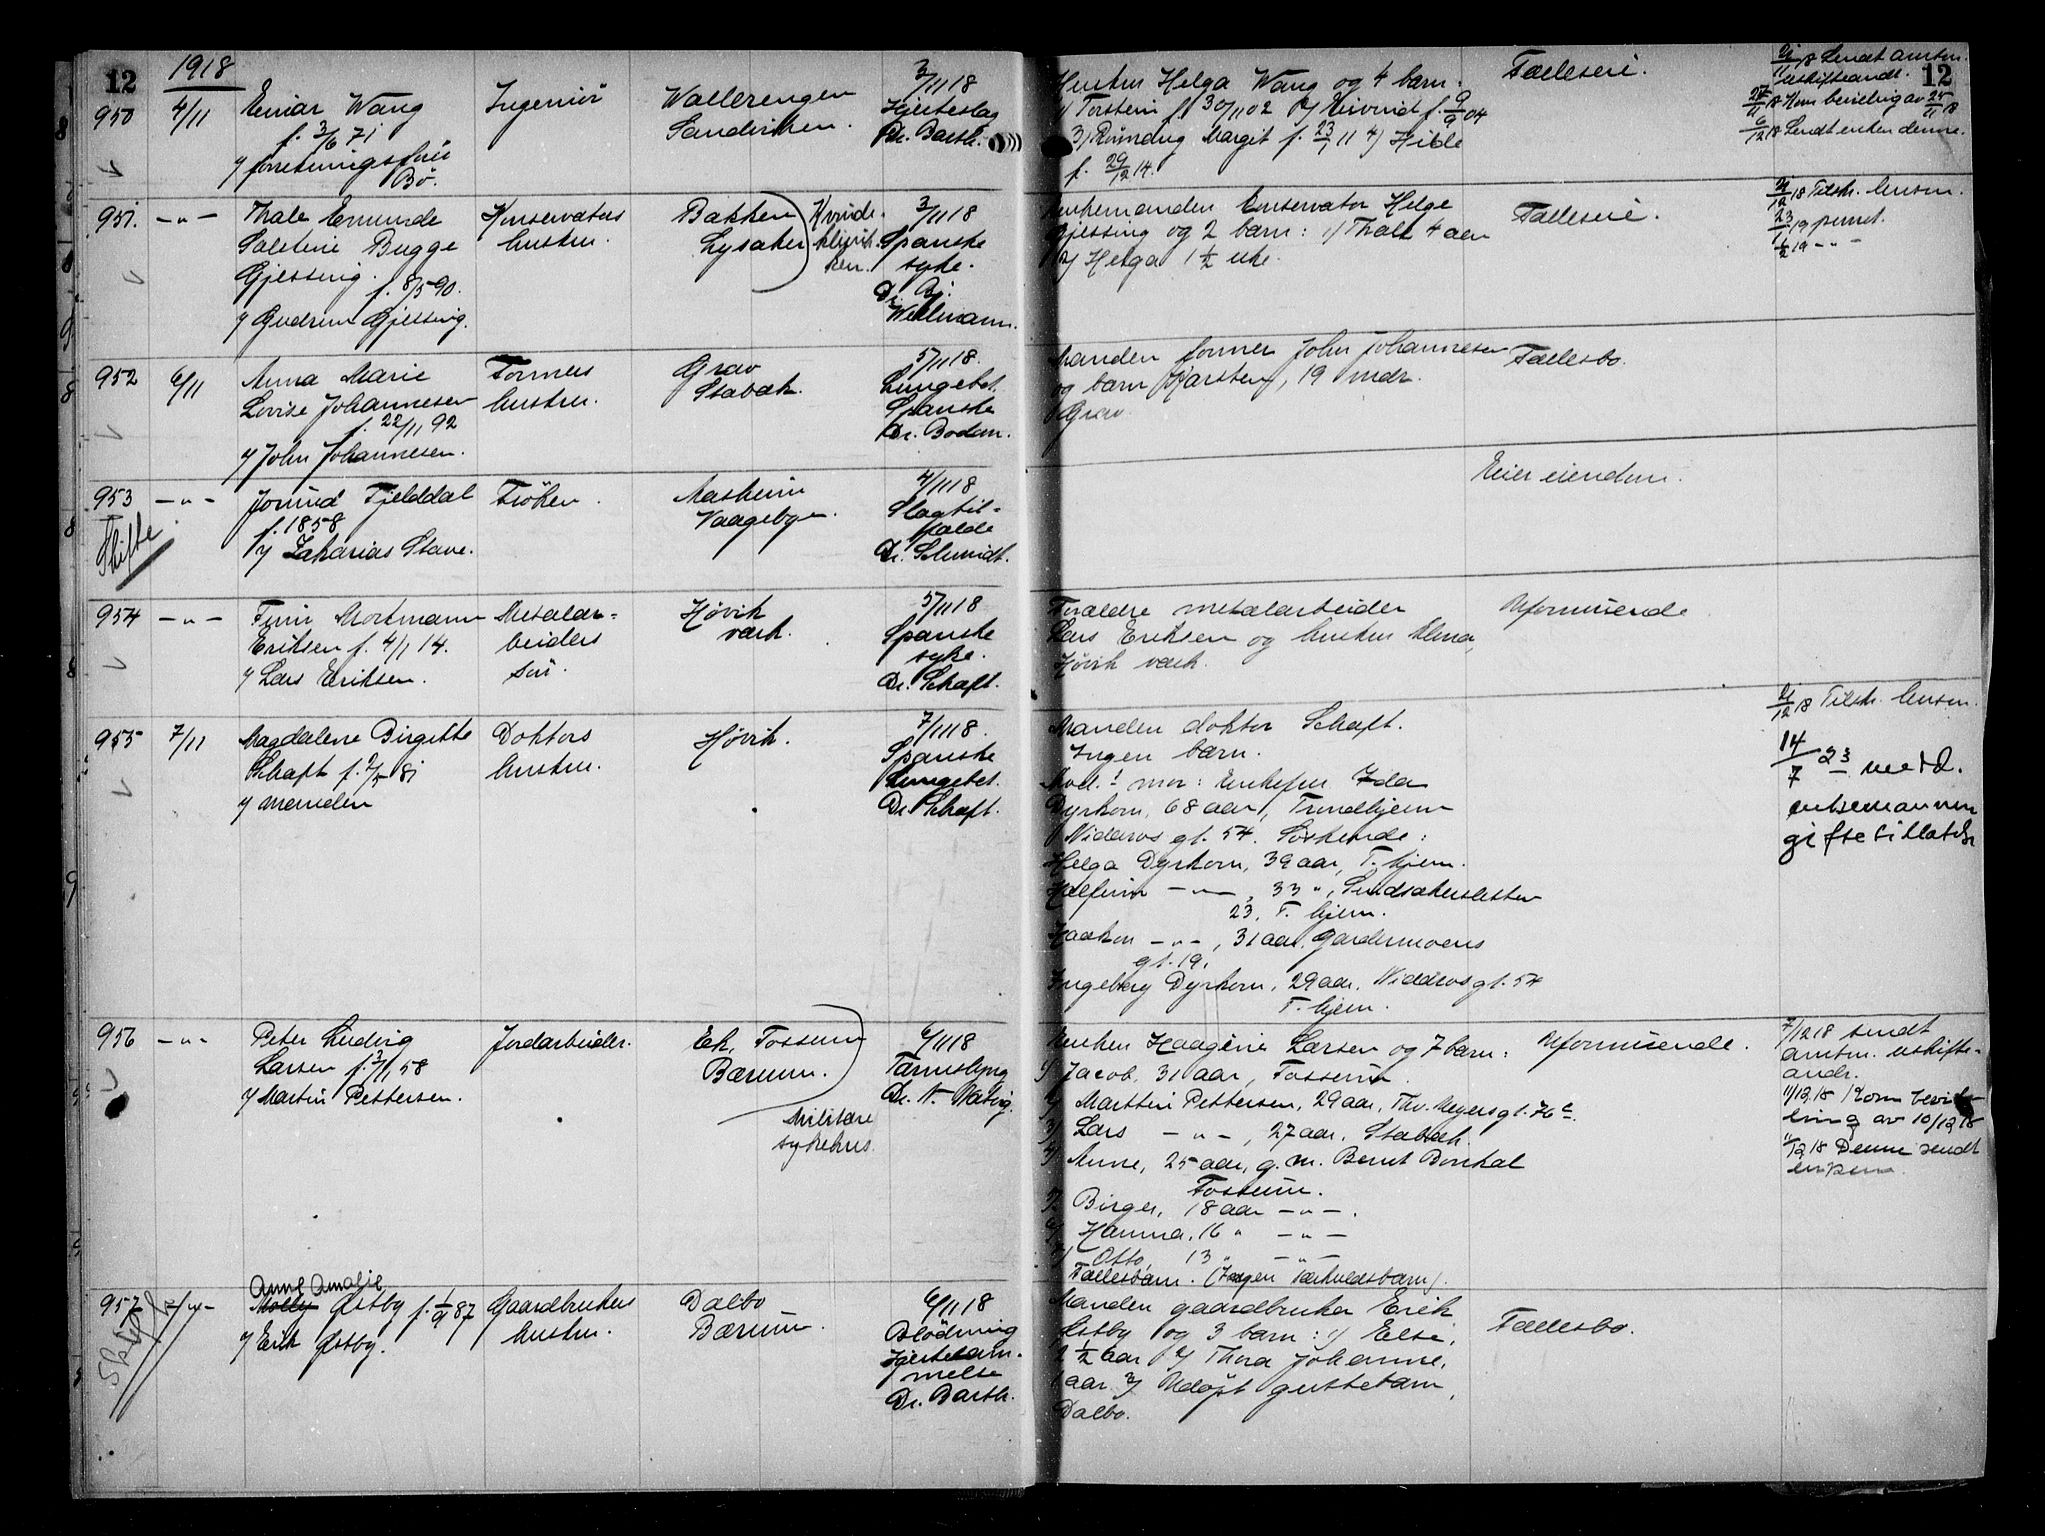 12
1918
950
4/11
Einar Wang
f. 3/6 71
v/ forretningsfører
Bø.
Ingeniør
Vallerengen
Sandviken.
3/11 18
Hjerteslag
Dr. Barth.
Enken Helga Wang og 4 barn:
1/ Torstein f. 30/11 02 2/ Eivind f. 9/9 04
3/ Rønnaug Margit f. 23/1 11 4/ Hilde
f. 29/12 14.
Fælleseie.
Sendt amtm.
uskifteandr.
12
Kom bevilling av 25/11 18
6/12 18 Sendt enken denne.
951.
— " —
Thale Emunde
Salstine Bugge
Gjessing. f. 8/5 90.
v/ Gudrun Gjessing.
Konservators
hustru.
Bakken
Lysaker
Kvinde-
klinik-
ken.
3/11 18
Spanske
syke.
Dr. Bj.
Wellmann.
Enkemanden konservator Helge
Gjessing og 2 barn: 1/ Thale 4 aar
2/ Helga 1 1/2 uke.
Fælleseie.
/12 18 Tilskr. lensm.
23/1 19 purret.
1/2 19 — " —
952
6/11
Anna Marie
Lovise Johannesen
f. 22/11 92
v/ John Johannesen.
Formers
hustru.
Grav
Stabæk.
5/11 18.
Lungebet.
Spanske
Dr. Bodom.
Manden former John Johannesen
og barn Karsten, 19 mdr.
Grav
Fællesbo.
953
— " —
Skifte
Jorund Fjelddal
f. 1858
v/ Zakarias Stave.
Frøken.
Aasheim
Vaagebyen.
4/11 18
Slagtil-
fælde
Dr. Schmidt.
Eier eiendom.
954
— " —
Finn Mortmann
Eriksen f. 4/1 14.
v/ Lars Eriksen.
Metalar-
beiders
søn.
Høvik
værk.
5/11 18
Spanske
syke.
Dr. Schaft.
Forældre metalarbeider
Lars Eriksen og hustru Elma,
Høvik værk.
Uformuende
955
7/11
Magdalene Birgitte
Schaft f. 2/5 81
v/ manden
Doktors
hustru.
Høvik.
7/11 18.
Spanske
Lungebet.
Dr. Schaft.
Manden doktor Schaft.
Ingen barn.
Avd.s mor: Enkefru Ida
Dyrkorn, 68 aar, Trondhjem
Nidaros gt. 54. Søskende:
Helga Dyrkorn, 39 aar, T. hjem.
Halfinn — " —, 33 ",
23, T. hjem.
Haakon — " —, 31 aar, Gardermoens
gt. 19,
Ingeborg Dyrkorn, 29 aar, Nidaros gt. 54
T. hjem.
/12 18 Tilskr. lensm.
14/7 23 medd.
enkemannen
giftetillatelse
956
— " —
Peter Ludvig
Larsen f. 3/1 58
v/ Martin Pettersen.
Jordarbeider.
Ek, Fossum
Bærum.
Militære
sykehus.
6/11 18
Tarmslyng
Dr. N. Natvig.
Enken Haagine Larsen og 7 barn:
1/ Jacob, 31 aar, Fossum.
2/ Marttin Pettersen, 29 aar, Thv. Meyers gt. 76 c.
3/ Lars — " —, 27 aar, Stabæk.
4/ Anne, 25 aar, g. m. Bernt
Fossum.
5/ Birger, 18 aar — " —.
6/ Hanna, 16 " — " —
7/ Otto, 13 " — " —
Fællesbarn. (Ingen særkuldsbarn).
Uformuende.
7/12 18 sendt
amtm. uskifte-
andr.
11/12 18 Kom bevil-
ling av 10/12 18
11/12 18 Denne sendt
enken
957
— " —
Skifte
Anne Amalie
Molly Østby f. 1/9 87
v/ Erik Østby.
Gaardbrukers
hustru.
Dalbo
Bærum.
6/11 18
Blødning
Hjertelam-
melse
Dr. Barth.
Manden gaardbruker Erik
Østby og 3 barn: 1/ Else,
2 1/2 aar 2/ Thora Johanne,
1 aar 3/ Udøpt guttebarn,
Dalbo.
Fællesbo.